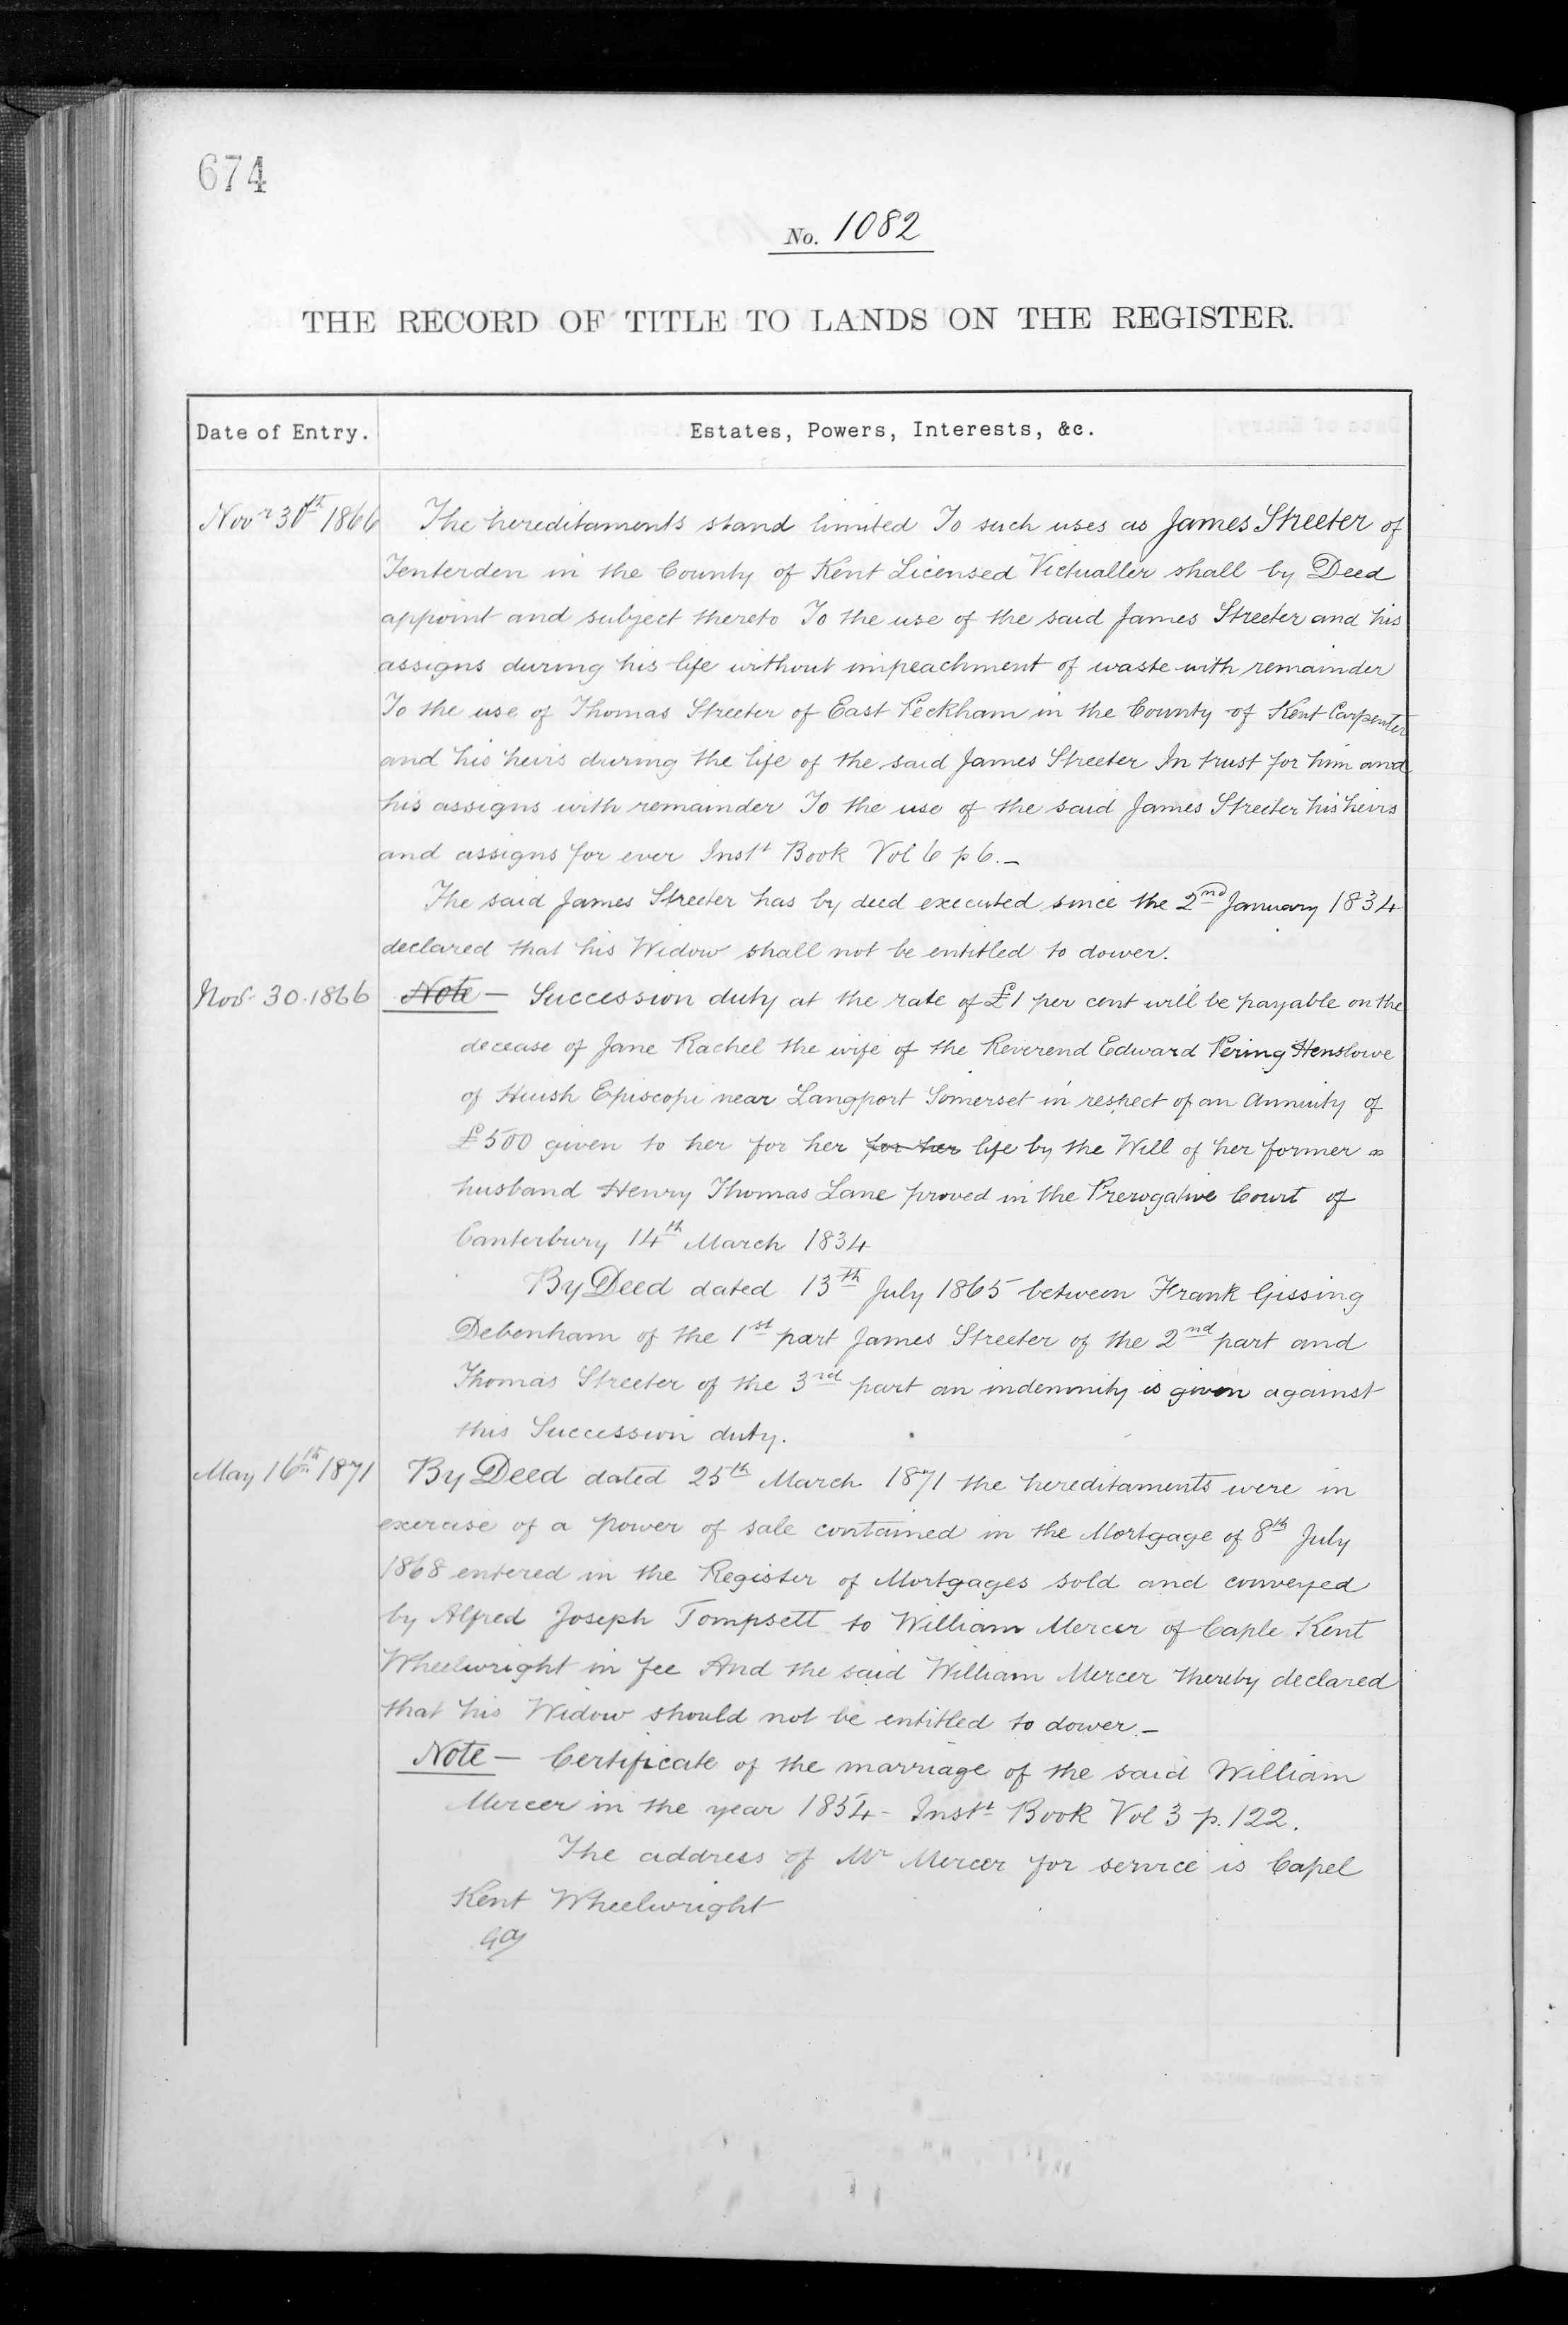 674
No. 1082
THE RECORD OF TITLE TO LANDS ON THE REGISTER.
Date of Entry. Estates, Powers, Interests, &c.
Novr 30th 1866 The hereditaments stand limited To such uses as James Streeter of
Tenterden in the County of Kent Licensed Victualler shall by Deed
appoint and subject thereto To the use of the said James Streeter and his
assigns during his life without impeachment of waste with remainder
To the use of Thomas Streeter of East Peckham in the County of Kent Carpenter
and his heirs during the life of the said James Streeter In trust for him and
his assigns with remainder To the use of the said James Streeter his heirs
and assigns for ever Instt Book Vol 6 p 6. –
The said James Streeter has by deed executed since the 2nd January 1834
declared that his Widow shall not be entitled to dower.
Novr 30. 1866 Note – Succession duty at the rate of £1 per cent will be payable on the
decease of Jane Rachel the wife of the Reverend Edward Pering Henslowe
of Huish Episcopi near Langport Somerset in respect of an Annuity of
£500 given to her for her for her life by the Will of her former
husband Henry Thomas Lane proved in the Prerogative Court of
Canterbury 14th March 1834
By Deed dated 13th July 1865 between Frank Gissing
Debenham of the 1st part James Streeter of the 2nd part and
Thomas Streeter of the 3rd part an indemnity is given against
this Succession duty.
May 16th 1871 By Deed dated 25th March 1871 the hereditaments were in
exercise of a power of sale contained in the Mortgage of 8th July
1868 entered in the Register of Mortgages sold and conveyed
by Alfred Joseph Tompsett to William Mercer of Caple Kent
Wheelwright in fee And the said William Mercer thereby declared
that his Widow should not be entitled to dower. –
Note – Certificate of the marriage of the said William
Mercer in the year 1854 – Instt Book Vol 3 p. 122.
The address of Mr Mercer for service is Capel
Kent Wheelwright